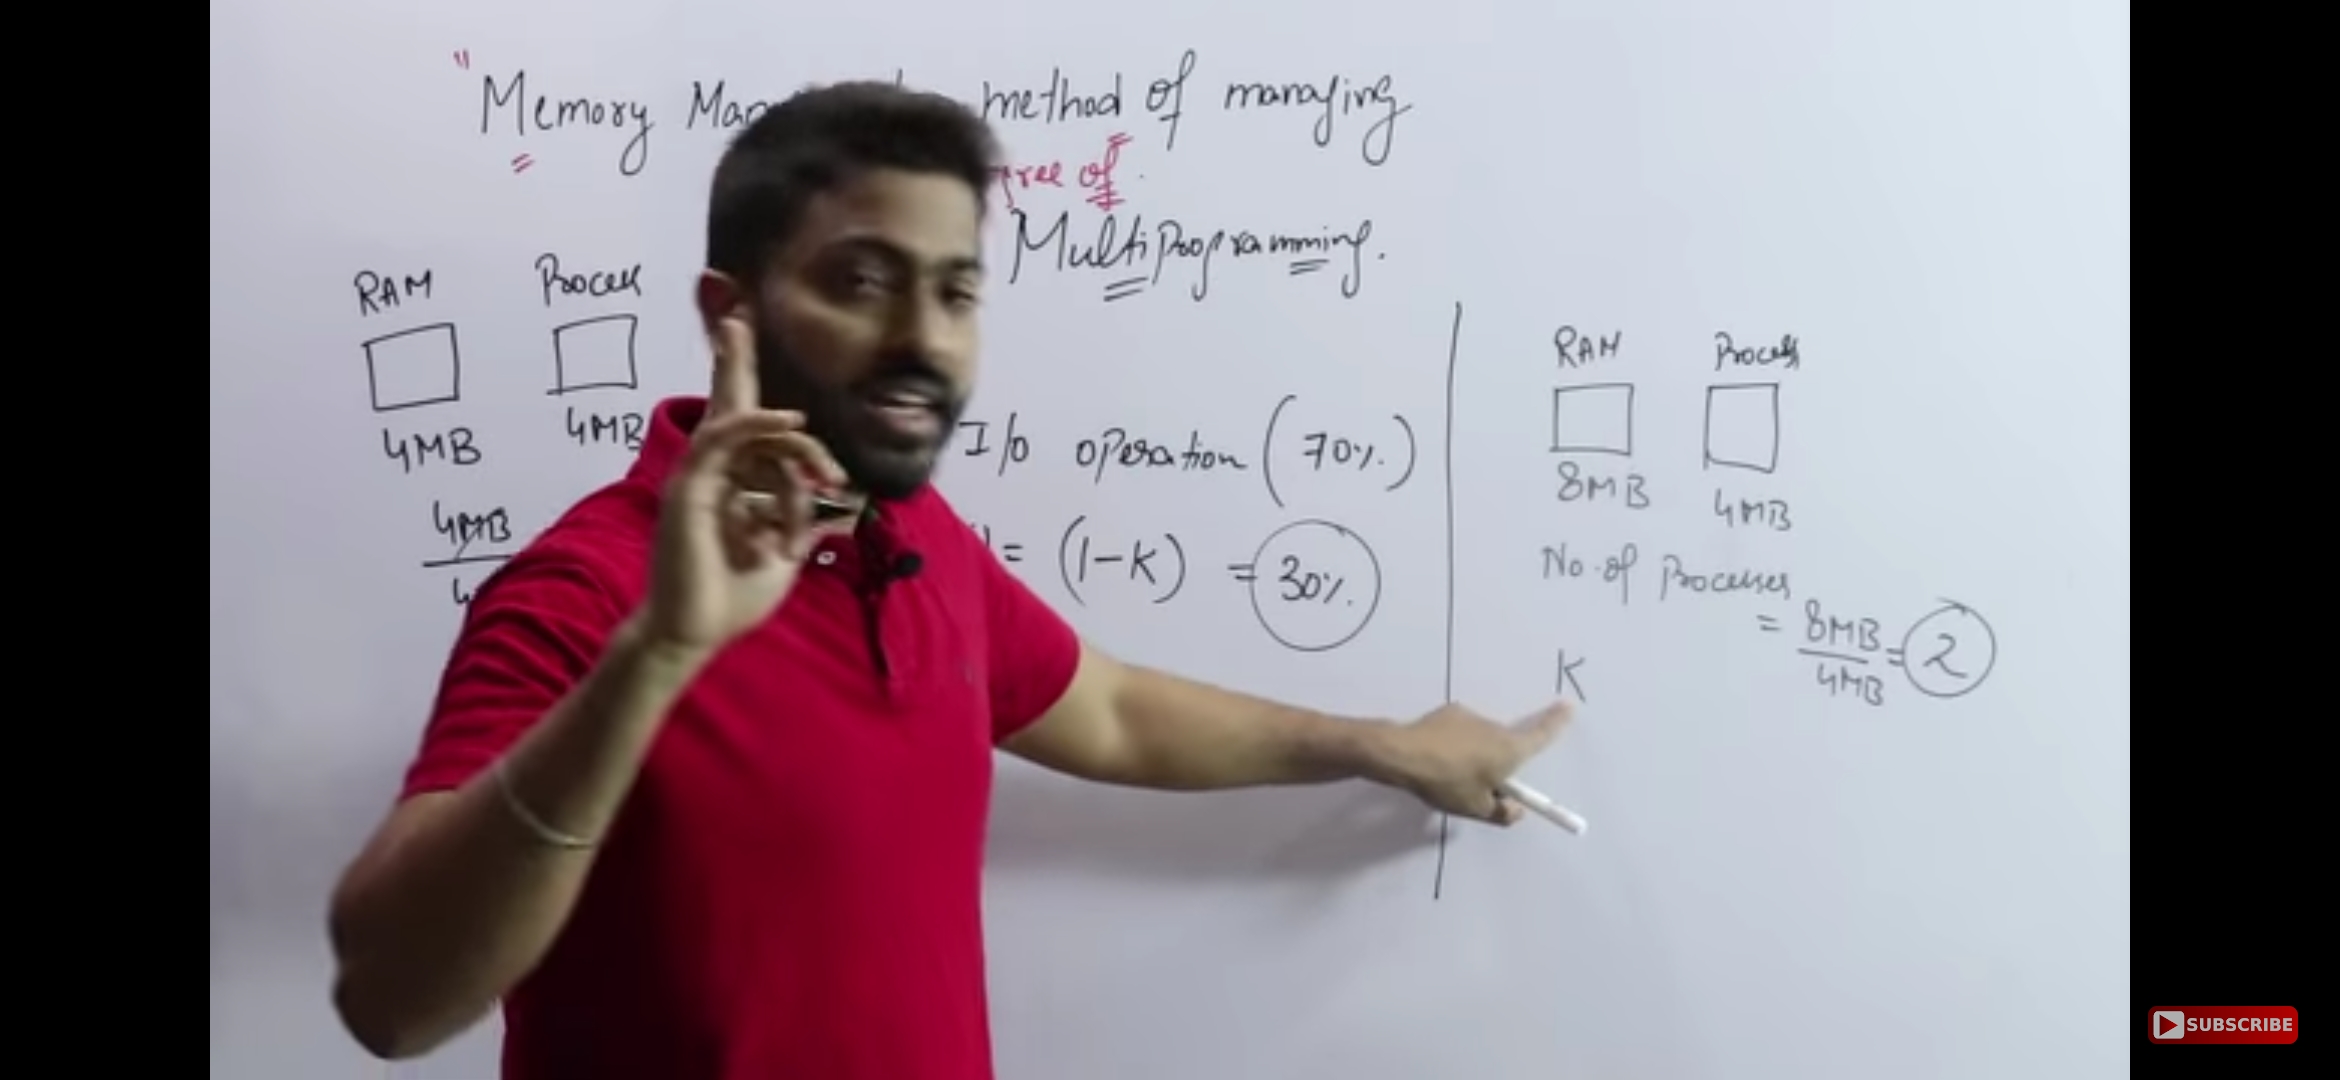 "Memory method of managing
of
MultiProgramming.
RAM Process
4MB 4MB
I/o operation (70%.)
4MB
= (1-K) = 30%.
RAM Process
8MB 4MB
No. of Processes
= 8MB / 4MB = 2
K
SUBSCRIBE